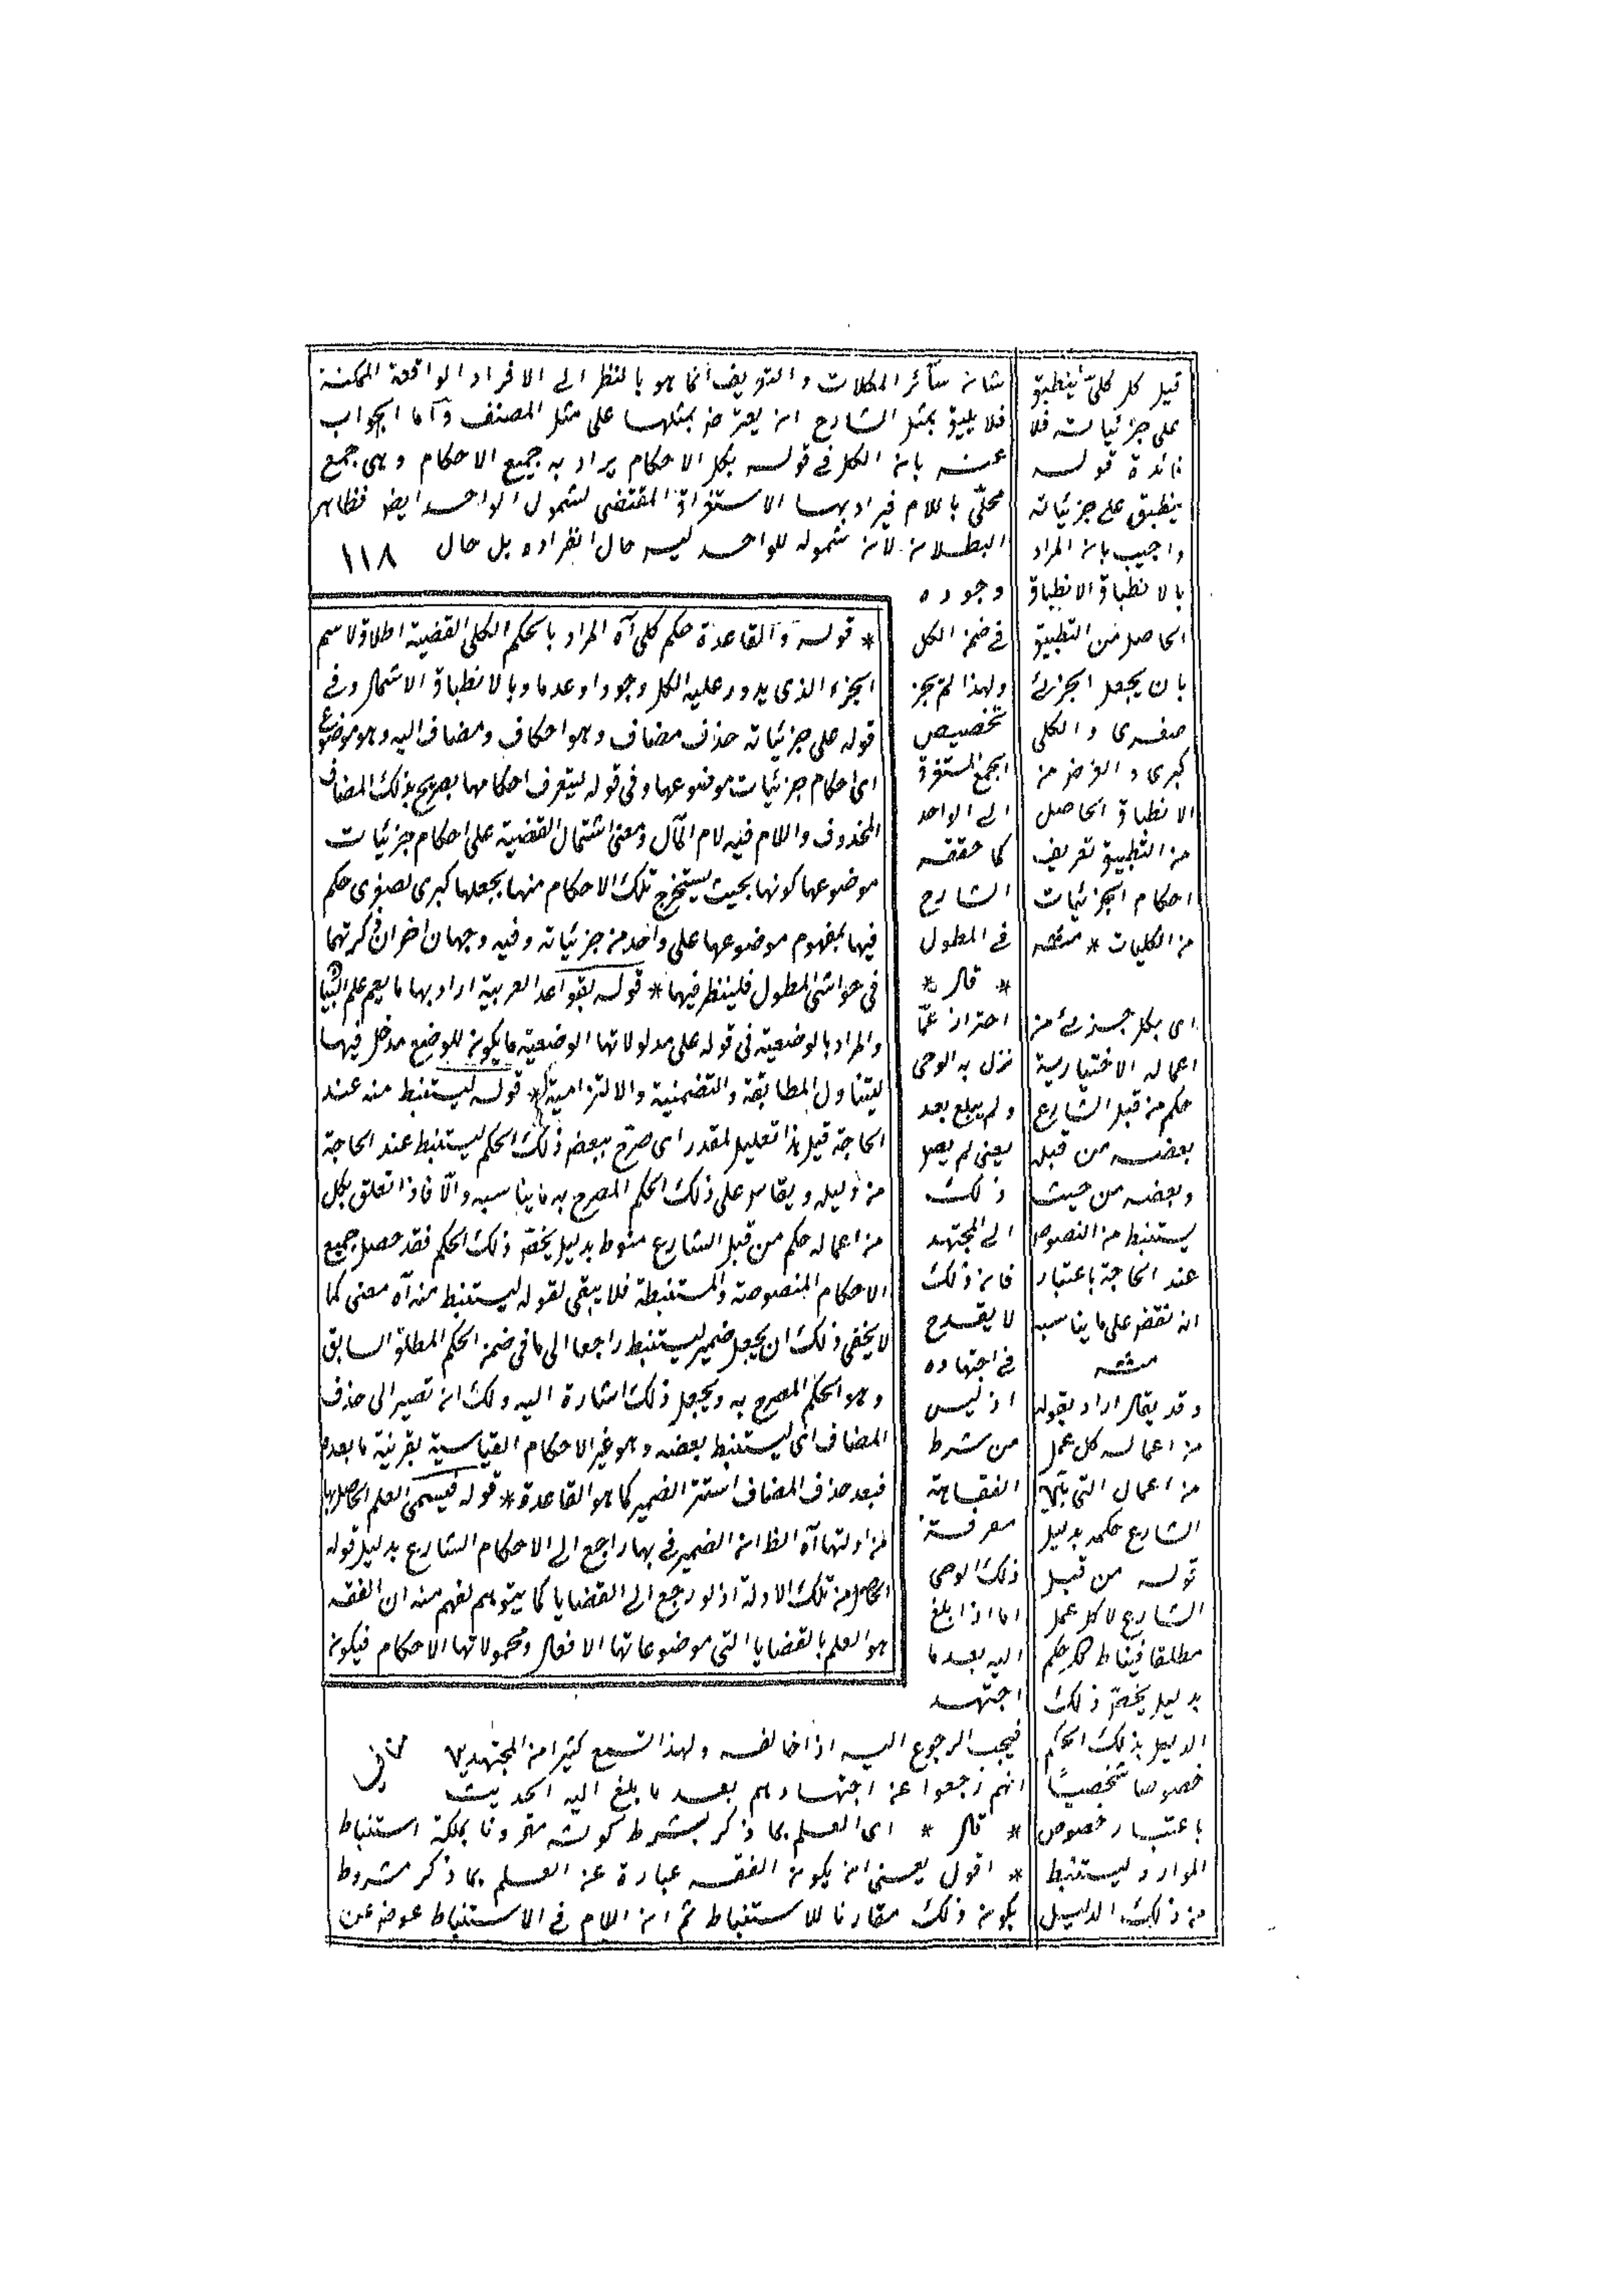 شانه سائر الملكات و التعريف انما هو بالنظر الى الافراد الواقعة الممكنة
فلا يليق بمثل الشارح ان يعترض بمثلها على مثل المصنف واما الجواب
عنه بان الكل في قوله بكل الاحكام يراد به جميع الاحكام وهى جمع
محلّى باللام فيراد بها الاستغراق المقتضى لشمول الواحد ايضا فظاهر
البطلان لان شموله للواحد ليس حال انفراده بل حال ١١٨
وجوده
في ضمن الكل
ولهذا لم يجز
تخصيص
الجمع المستغرق
الى الواحد
كما حققه
الشارح
في المطول
* قال *
احتراز عمّا
نزل به الوحى
ولم يبلغ بعد
يعنى لم يصل
ذلك
الى المجتهد
فان ذلك
لا يقدح
في اجتهاده
اذ ليس
من شرط
الفقاهة
معرفته
ذلك الوحى
اما اذا بلغ
اليه بعد ما
اجتهد
فيجب الرجوع اليه اذا خالفه ولهذا تسمع كثيرا من المجتهدين
انهم رجعوا عن اجتهادهم بعد ما بلغ اليه الحديث
* قال * اى العلم بما ذكر بشرط كونه مقرونا بملكة استنباط
* اقول يعنى ان يكون الفقه عبارة عن العلم بما ذكر مشروط
بكون ذلك مقارنا للاستنباط ثم ان اللام في الاستنباط عوض عن
* قوله والقاعدة حكم كلى آه المراد بالحكم الكلى القضية اطلاقا لاسم
الجزء الذى يدور عليه الكل وجودا وعدما وبالانطباق الاشتمال وفي
قوله على جزئياته حذف مضاف وهو احكام ومضاف اليه وهو موضوع
اى احكام جزئيات موضوعها وفي قوله ليتعرف احكامها تصريح بذلك المضاف
المحذوف واللام فيه لام المآل ومعنى اشتمال القضية على احكام جزئيات
موضوعها كونها بحيث يستخرج تلك الاحكام منها بجعلها كبرى لصغرى حكم
فيها بمفهوم موضوعها على واحد من جزئياته وفيه وجهان اخران ذكرتهما
في حواشى المطول فلينظر فيها * قوله بقواعد العربية اراد بها ما يعم علم البيان
والمراد بالوضعية في قوله على مدلولاتها الوضعية ما يكون للوضع مدخل فيها
ليتناول المطابقة والتضمنية والالتزامية * قوله ليستنبط منه عند
الحاجة قيل هذا تعليل لمقدر اى صرّح ببعض ذلك الحكم ليستنبط عند الحاجة
من دليله ويقاس على ذلك الحكم المصرح به ما يناسبه والّا فاذا تعلق بكل
من اعماله حكم من قبل الشارع منوط بدليل يخصّه ذلك الحكم فقد حصل جميع
الاحكام المنصوصة والمستنبطة فلا يبقى لقوله ليستنبط منه آه معنى كما
لا يخفى ذلك ان يجعل ضمير ليستنبط راجعا الى ما في ضمن الحكم المطلق السابق
وهو الحكم المصرح به ويجعل ذلك اشارة اليه ولك ان تصير الى حذف
المضاف اى ليستنبط بعضه وهو غير الاحكام القياسية بقرينة ما بعده
فبعد حذف المضاف استتر الضمير كما هو القاعدة * قوله فيسمى العلم الحاصل بها
من ادلتها آه الظ ان الضمير في بها راجع الى الاحكام الشارع بدليل قوله
الحاصل من تلك الادلة اذ لو رجع الى القضايا كما يتوهم لفهم منه ان الفقه
هو العلم بالقضايا التى موضوعاتها الافعال ومحمولاتها الاحكام فيكون
قيل كل كلىّ ينطبق
على جزئياته فلا
فائدة قوله
ينطبق على جزئياته
واجيب بان المراد
بالانطباق الانطباق
الحاصل من التطبيق
بان يجعل الجزئى
صغرى و الكلى
كبرى و الغرض من
الانطباق الحاصل
من التطبيق تعريف
احكام الجزئيات
من الكليات *
اى بكل جزئى من
اعماله الاختيارية
حكم من قبل الشارع
بعضه من قبله
وبعضه من حيث
يستنبط من النصوص
عند الحاجة باعتبار
انه نقض على ما يناسبه
وقد يقال اراد بقوله
من اعماله كل عمل
من اعمال التى
الشارع حكمه بدليل
قوله من قبل
الشارع لا كل عمل
مطلقا فيناط كل حكم
بدليل يخصّه ذلك
الدليل بذلك الحكم
خصوصا شخصيًا
باعتبار خصوص
الموارد ليستنبط
من ذلك الدليل